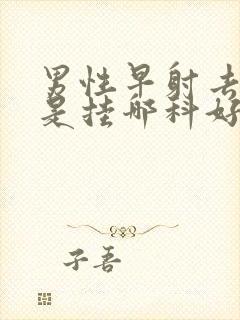 男性早射去
是挂哪科好
子吾